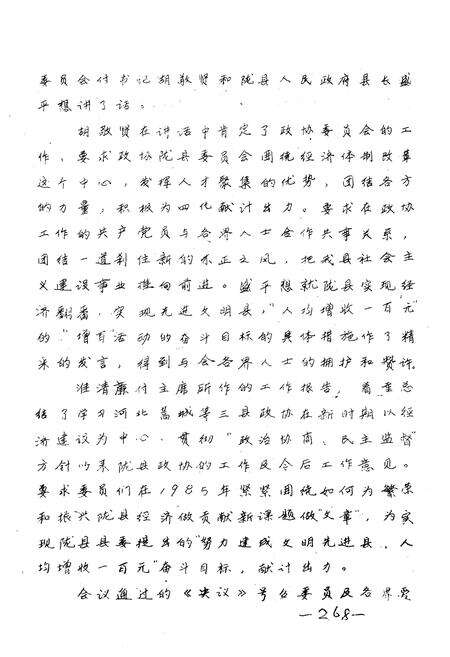 委员会付书记胡敬贤和陇县人民政府县长盛
平想讲了话。
胡敬贤在讲话中肯定了政协委员会的工
作，要求政协陇县委员会围绕经济体制改革
这个中心，发挥人才聚集的优势，团结各方
的力量，积极为四化献计出力。要求在政协
工作的共产党员与各界人士合作共事关系，
团结一道刹住新的不正之风，把我县社会主
义建设事业推向前进。盛平想就陇县实现经
济翻番，实现先进文明县，“人均增收一百元”
的“增百”活动的奋斗目标的具体措施作了精
采的发言，得到与会各界人士的拥护和赞许。
淮清廉付主席所作的工作报告，着重总
结了学习河北藁城等三县政协在新时期以经
济建设为中心，贯彻“政治协商、民主监督”
方针以来陇县政协的工作及今后工作意见。
要求委员们在1985年紧紧围绕如何为繁荣
和振兴陇县经济做贡献新课题做“文章”，为实
现陇县县委提出的“努力建成文明先进县，人
均增收一百元”奋斗目标，献计出力。
会议通过的《决议》号召委员及各界爱
—268—